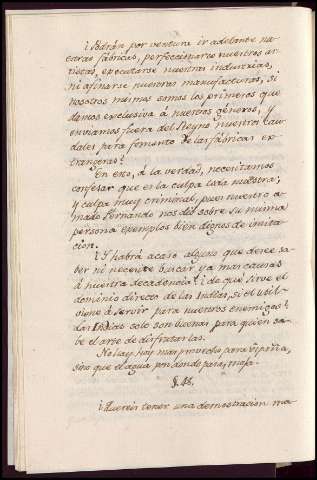 ¿Podrán por ventura ir adelante nu-
estras fábricas, perfeccionarse nuestros ar-
tistas, executarse nuestras industrias,
ni afinarse nuestras manufacturas, si
nosotros mismos somos los primeros que
damos exclusiva á nuestros géneros, y
enviamos fuera del Reyno nuestros cau-
dales para fomento de las fábricas ex-
trangeras?
En esto, á la verdad, necesitamos
confesar que es la culpa toda nuestra;
y culpa muy criminal, pues nuestro a-
mado Fernando nos dió sobre su misma
persona exemplos bien dignos de imita-
cion.
¿Y habrá acaso alguno que desee sa-
ber ni necesite buscar ya mas causas
á nuestra decadencia? ¿de qué sirve el
dominio directo de las Indias, si el util
viene á servir para nuestros enemigos?
las Indias solo son buenas para quien sa-
be el arte de disfrutarlas.
No hay hoy mas provecho para España,
sino que el agua por donde pasa, moja.
§. 48.
¿Quereis tener una demostracion ma-